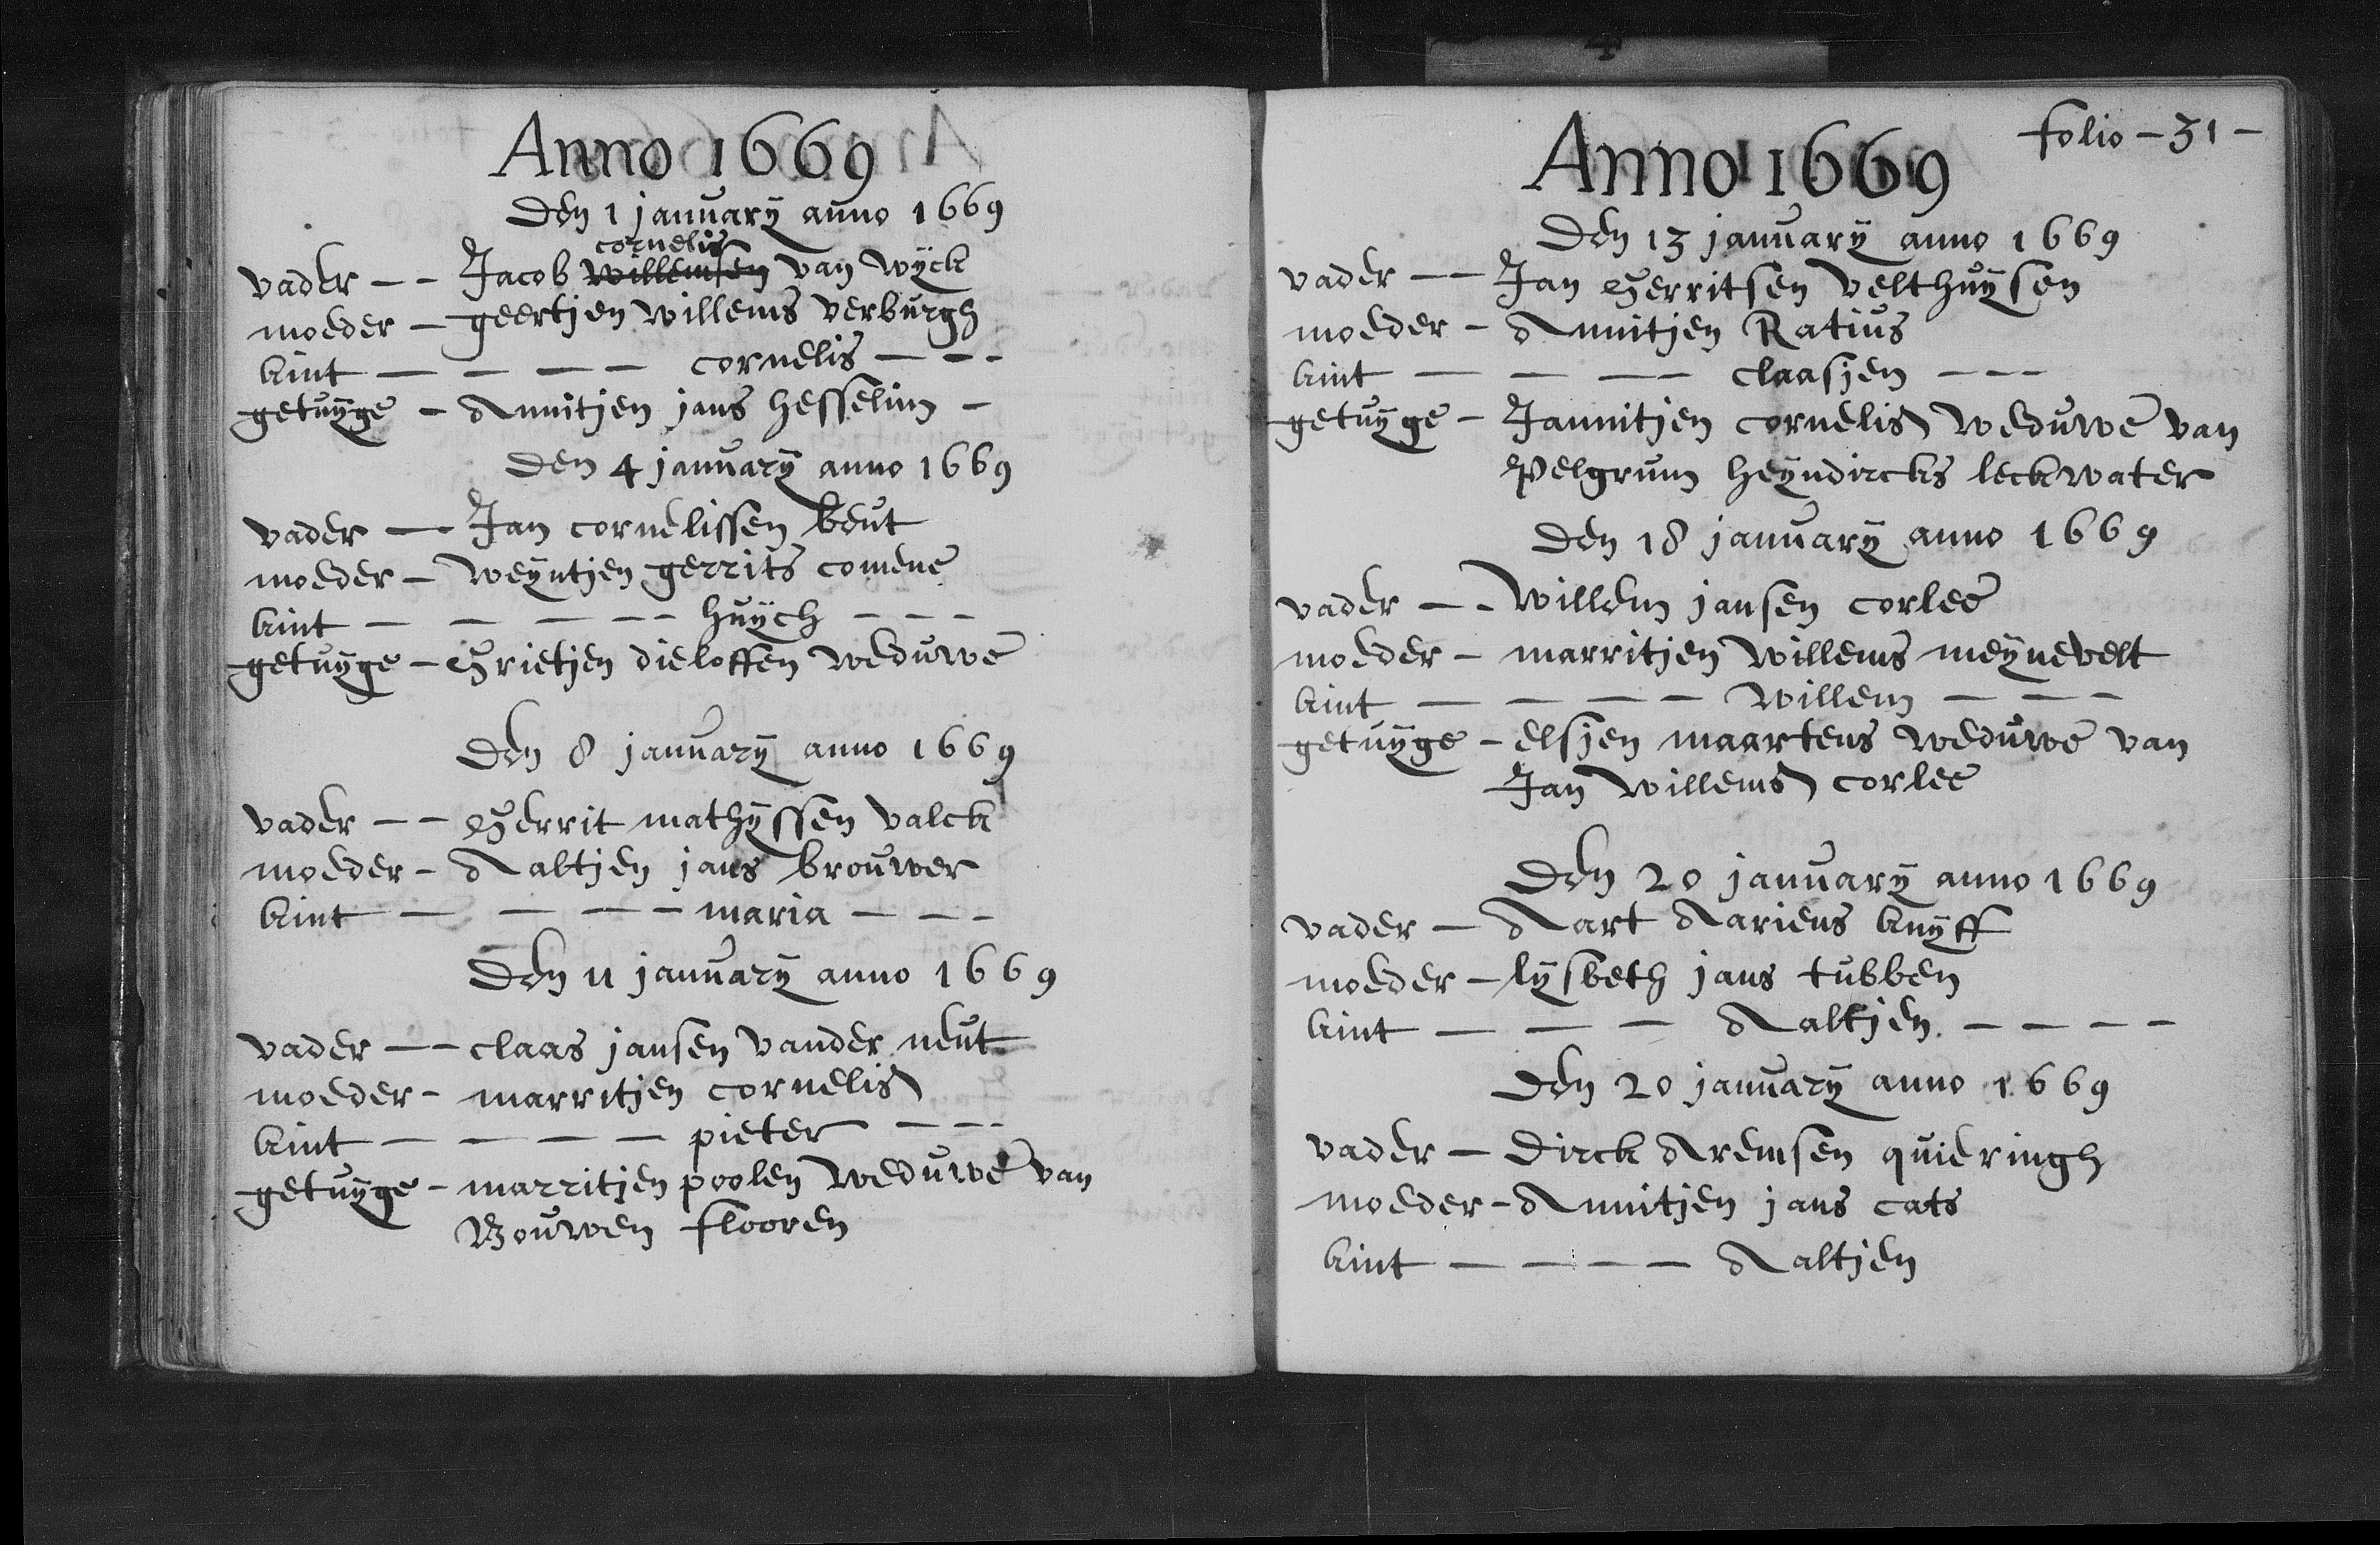 Anno 1669
Den 1 januarÿ anno 1669
cornelis
vader - - Jacob willemsen van wÿck
moeder - geertjen willems verburgh
kint - - - - cornelis - - -
getuÿge - Annitjen jans hesselim -
Den 4 januarÿ anno 1669
vader - Jan cornelissen beut
moeder - weÿntjen gerrits comene
kint - - - - - huÿch - - -
getuÿge - Grietjen dieloffen weduwe
Den 8 januarÿ anno 1669
vader - - Gerrit mathÿssen valck
moeder - Aaltjen jans brouwer
kint - - - - maria - - -
Den 11 januarÿ anno 1669
vader - - claas jansen vander neut
moeder - marritjen cornelis
kint - - - - pieter - - -
getuÿge - marritjen poolen weduwe van
Bouwen flooren
folio - 31 -
Anno 1669
Den 13 januarÿ anno 1669
vader - - Jan Gerritsen velthuÿsen
moeder - Annitjen Ratius
kint - - - - claasjen - - -
getuÿge - Jannitjen cornelis weduwe van
Pelgrum heÿndircks leckwater
Den 18 januarÿ anno 1669
vader - - willem jansen corlee
moeder - marritjen willems meÿnevelt
kint - - - - willem - - -
getuÿge - elsjen maartens weduwe van
Jan willems corlee
Den 20 januarÿ anno 1669
vader - Aart Aariens knÿff
moeder - lÿsbeth jans tubben
kint - - - Aaltjen - - - -
Den 20 januarÿ anno 1669
vader - Dirck Aremsen quieringh
moeder - Annitjen jans cats
kint - - - - Aaltjen